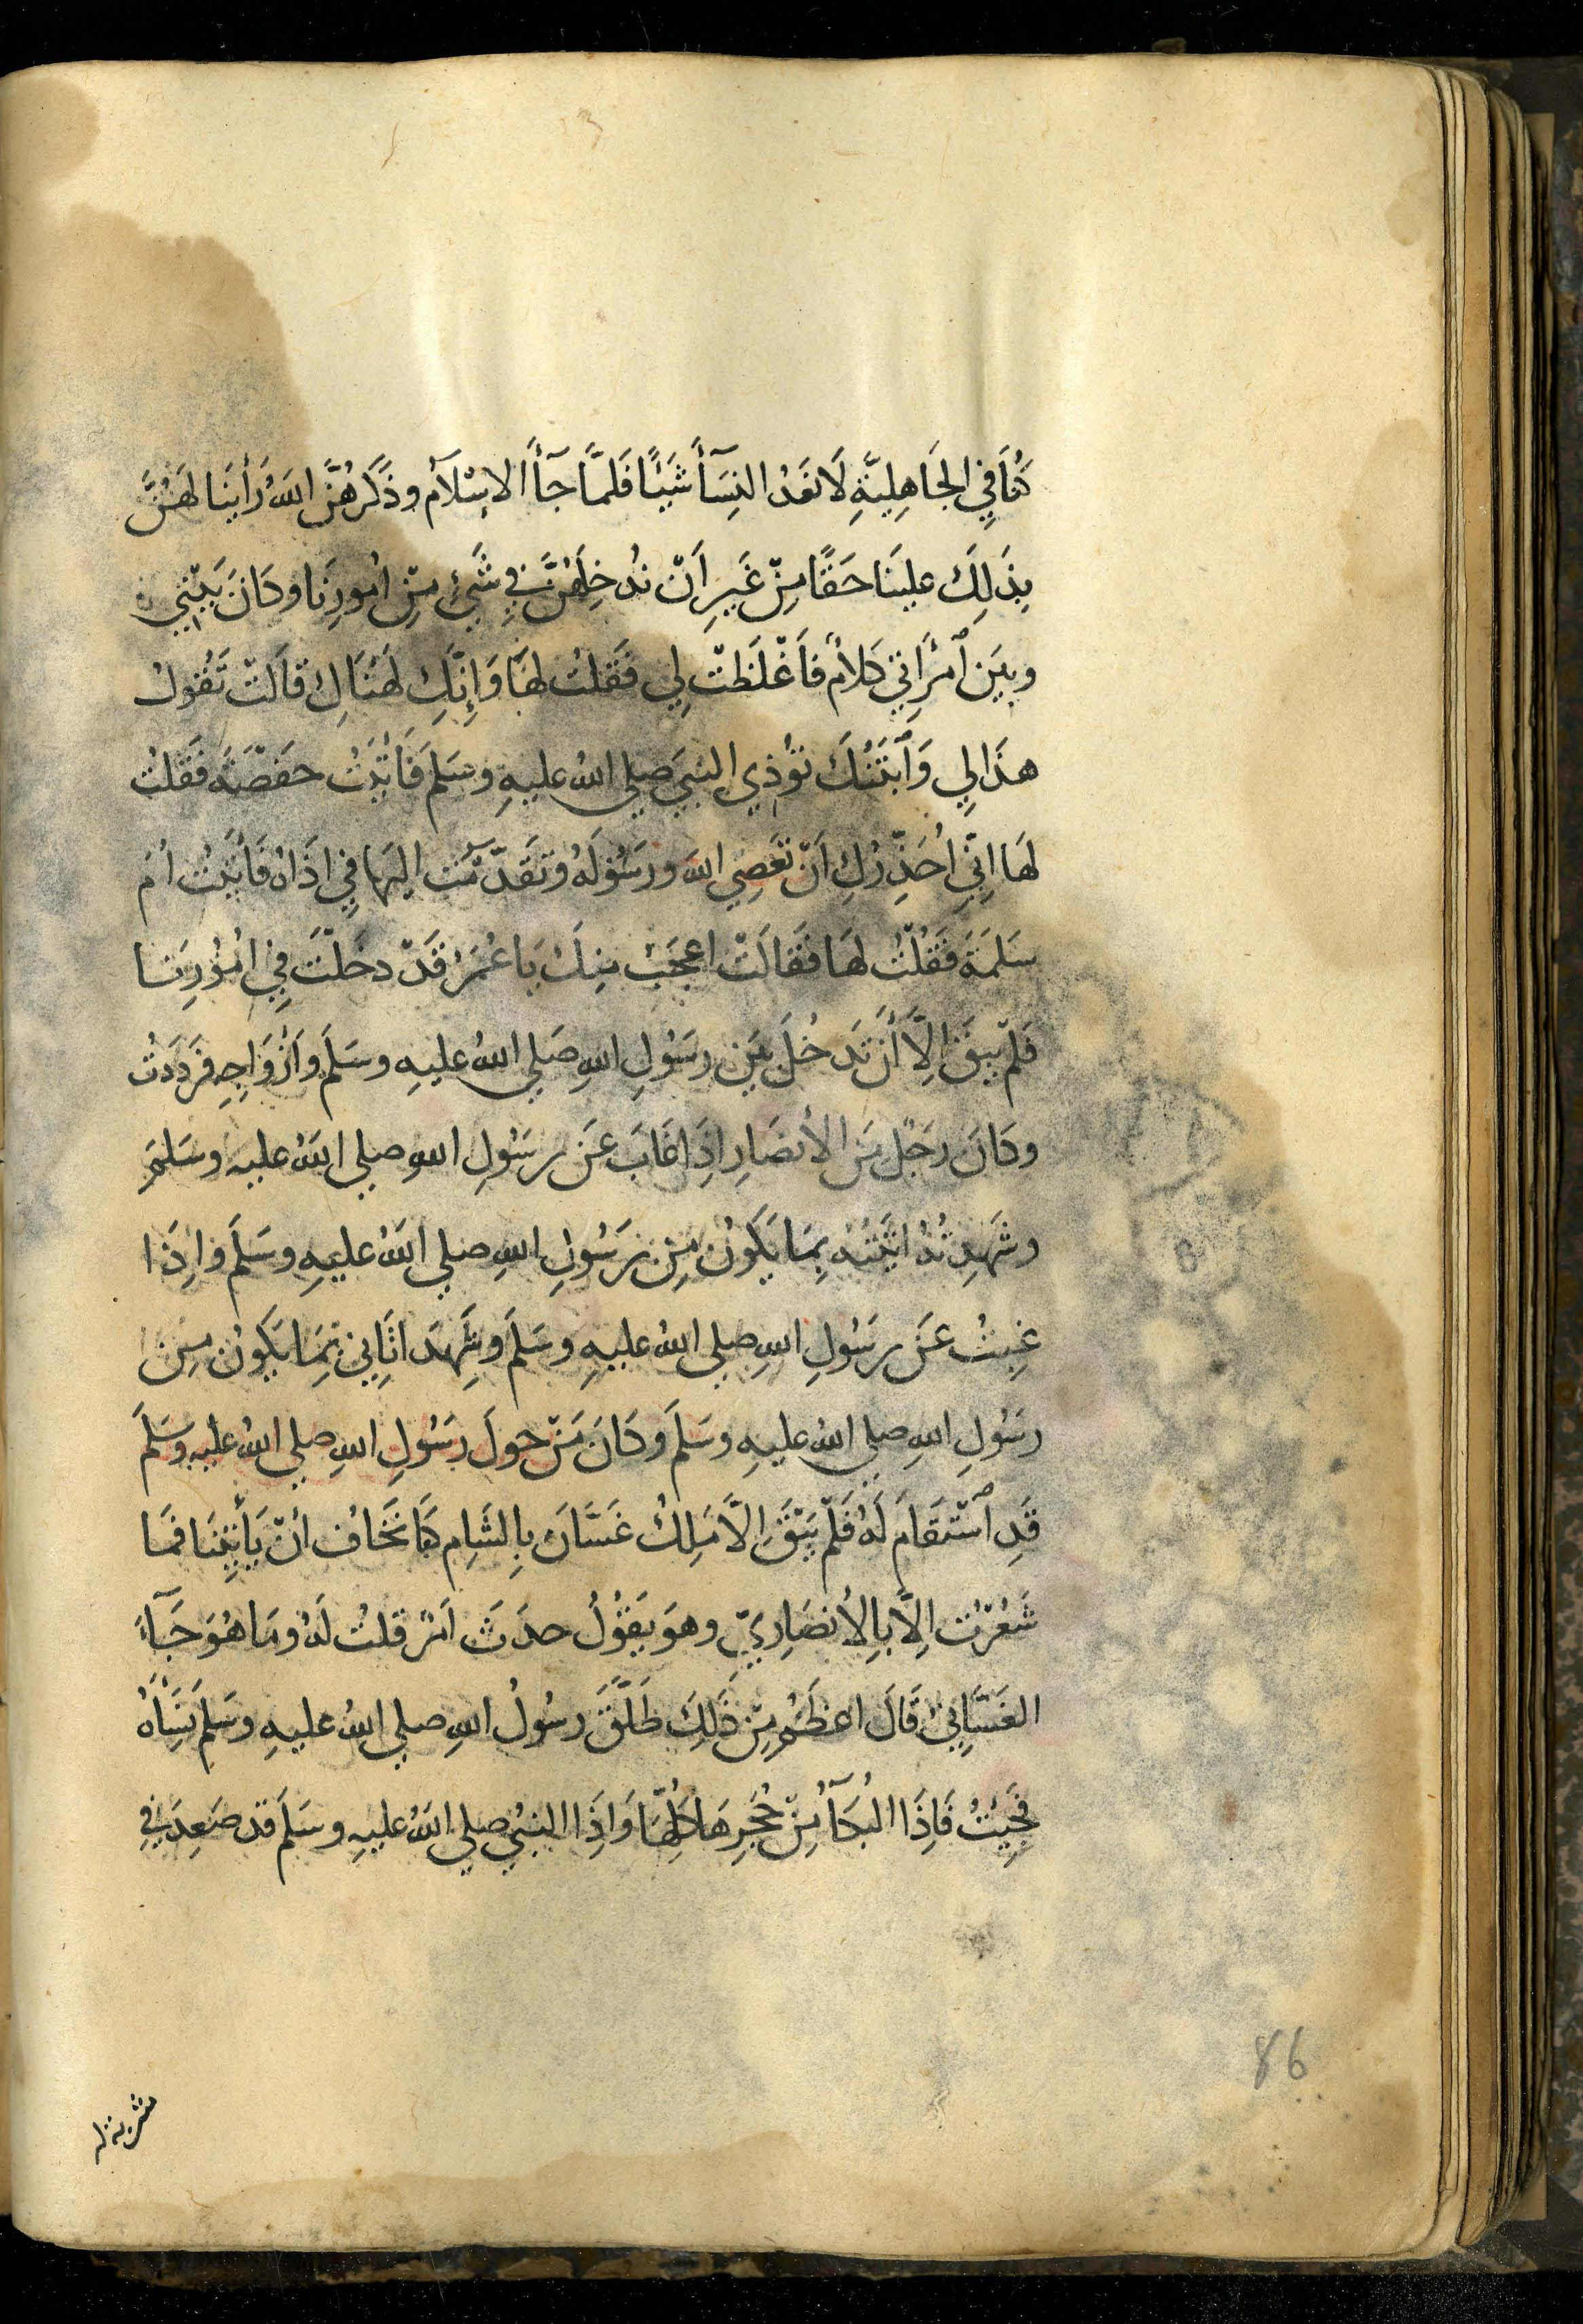 كُنَّا فِي الجَاهِلِيَّةِ لَا نَعُدُّ النِّسَآءَ شَيْئًا فَلَمَّا جَآءَ الاِسْلَامُ وذَكَرَهُنَّ اللهُ رَأَيْنَا لَهُنَّ
بِذَلِكَ علينَا حَقًّا مِنْ غَيرِ اَنْ نُدخِلَهُنَّ فِي شَيْءٍ مِنْ اُمُورِنَا وكَانَ بَيْنِي
وبَيَن ٱمْرَاَتِي كَلَامٌ فَاَغْلَظَتْ لِي فَقَلتُ لهَا وَاِنَّكِ لَهُنَاكِ قالَتْ تَقُولُ
هذَا لِي وَٱبْنَتُكَ تُؤذِي النبيَ صلي اللهُ عليهِ وسَلمَ فَأَتَيْتُ حفْصَةَ فَقَلتُ
لهَا اِنِّي اُحَذِّرُكِ اَنْ تَعصِي اللهَ ورَسُولَهُ وتَقَدَّمْتُ اليهَا فِي اذَاهُ فَأتَيتُ اُمَ
سَلمَةَ فَقُلْتُ لهَا فَقَالَتْ اعجَبُ مِنكَ يَا عُمَرُ قَدْ دخَلْتَ فِي اُمُورِنَا
فَلمْ يَبقَ اِلَّا أَنْ تَدخُلَ بَيَن رسَولِ اللهِ صَلي اللهُ عليهِ وسَلمَ وأزْوَاجِهِ فَرَدَدَتْ
وكَانَ رجُلٌ مِنَ الأنصَارِ اِذَا غَابَ عَن رسَولِ اللهِ صلي اللهُ عليهِ وسَلمَ
وشَهِدتُهُ اتَيْتُهُ بِمَا يَكَونُ مِن رَسُولِ اللهِ صلي اللهُ عليهِ وسَلمَ وَاِذَا
غِبتُ عَن رسَولِ اللهِ صلي اللهُ عليهِ وسَلمَ وشَهِدَ اَتَانِي بِمَا يَكونُ مِنْ
رسَولِ اللهِ صلي اللهُ عليهِ وسَلمَ وكَانَ مَنْ حولَ رسَولِ اللهِ صلي اللهُ عليهِ وسَلمَ
قَدِ ٱسْتَقَامَ لَهُ فَلَمْ يَبْقَ اِلَّا مَلِكُ غَسَّانَ بِالشَامِ كُنَّا نَخَافُ اَنْ يَأتِيَنَا فمَا
شَعُرْتُ اِلَّا بِالاَنصَارِيِّ وهوَ يَقُولُ حدَثَ اَمرٌ قلتُ لَهُ ومَا هُوَ جَآءَ
الغَسَّانِيُّ قَالَ اعظَمُ مِنْ ذَلِكَ طَلَّقَ رسُولُ اللهِ صلي اللهُ عليهِ وسَلمَ نِسَآهُ
فَجِئتُ فَاِذَا البُكَآءُ مِنْ حُجَرِهَا كُلِّهَا وَاِذَا النبيُ صلي اللهُ عليهِ وسَلمَ قد صَعِدَ فِي
86
مشربة له